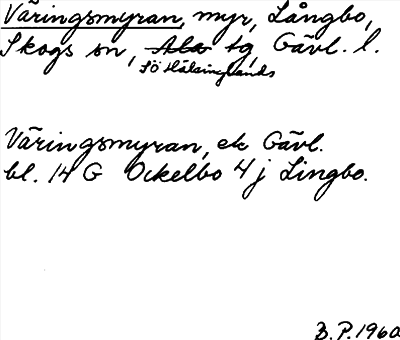 Väringsmyran, myr, Långbo,
Skogs sn, Ala tg, Gävl. l.
Sö Hälsinglands
Väringsmyran, ek Gävl.
bl. 14 G Ockelbo 4 j Lingbo.
B.P. 1960